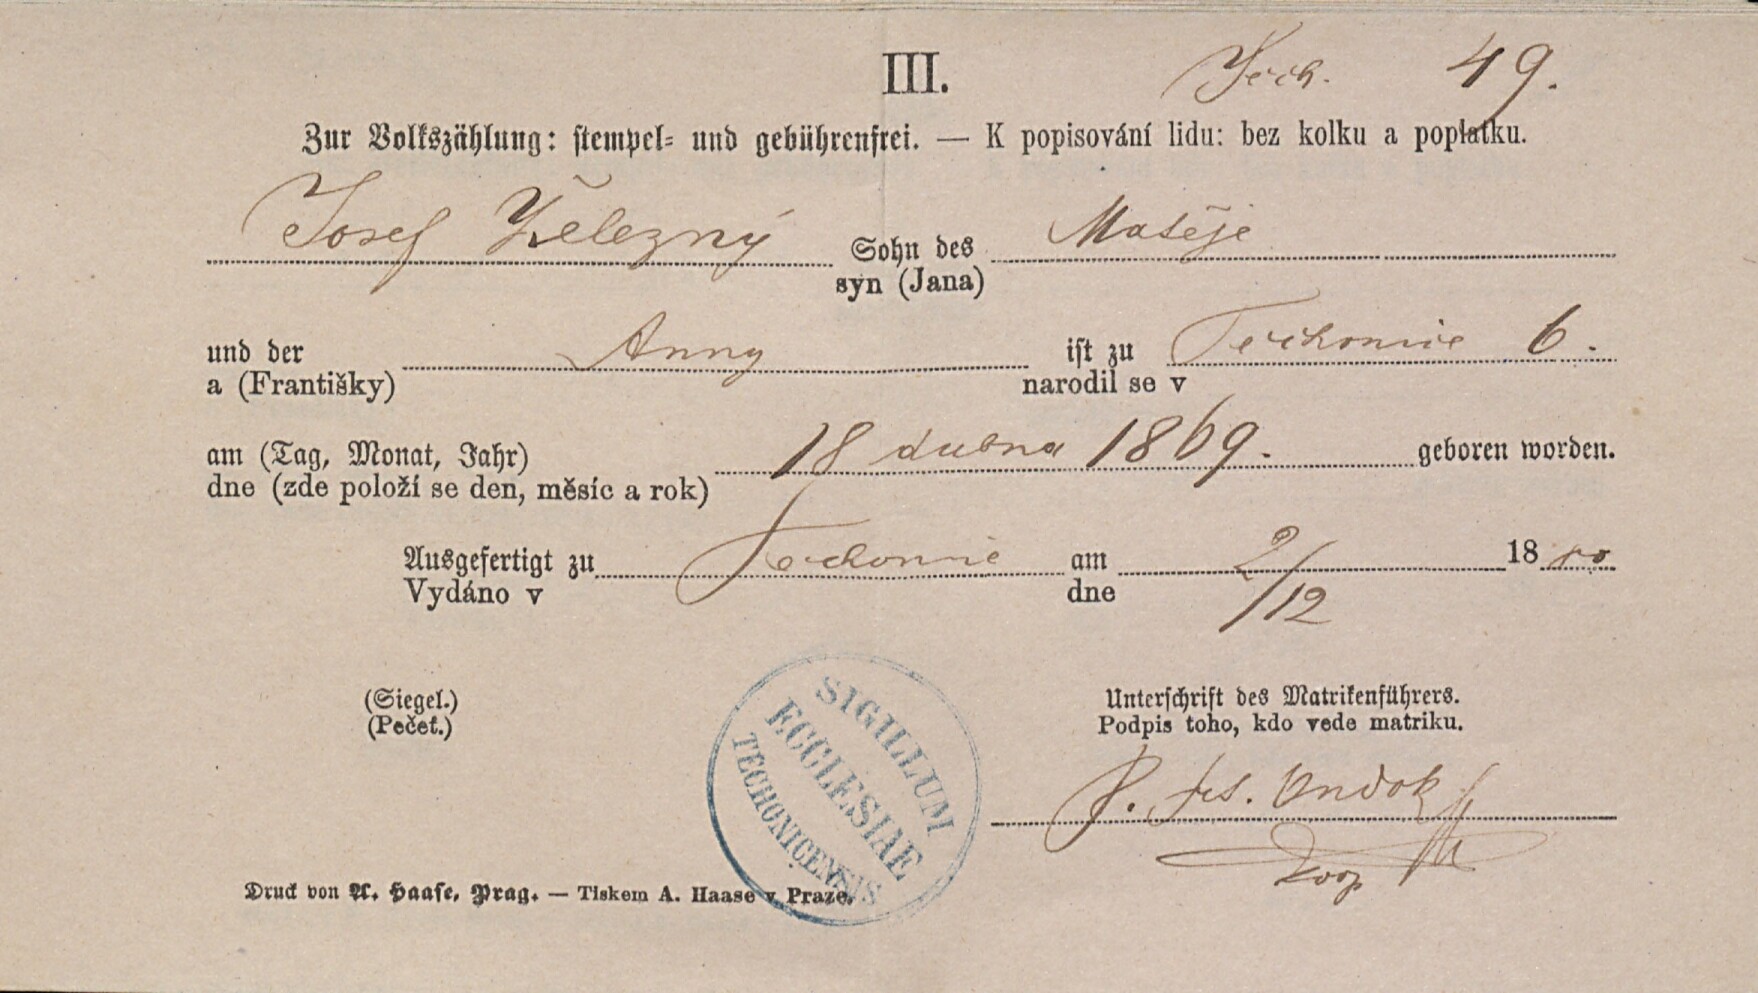 III.
Tech. 49.
Zur Volkszählung: stempel= und gebührenfrei. — K popisování lidu: bez kolku a poplatku.
Josef Železný Sohn des Matěje
syn (Jana)
und der Anny ist zu Techonice 6.
a (Františky) narodil se v
am (Tag, Monat, Jahr) 18 dubna 1869. geboren worden.
dne (zde položí se den, měsíc a rok)
Ausgefertigt zu Techonic am 2/12 1880
Vydáno v dne
(Siegel.) Unterschrift des Matrikenführers.
(Pečet.) Podpis toho, kdo vede matriku.
SIGILLUM
ECCLESIAE
TECHONICENSIS
P. Fr.
koop
Druck von A. Haase, Prag. — Tiskem A. Haase v Praze.